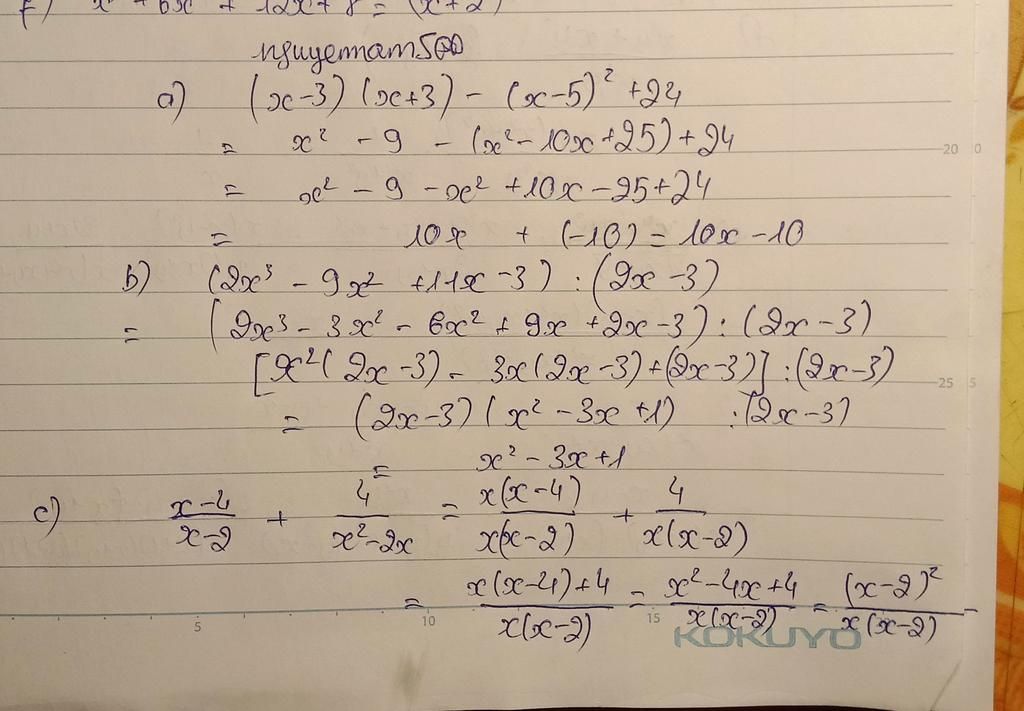 f) x³ + 6x² + 12x + 8 = (x+2)
nguyetam500
a) (x-3) (x+3) - (x-5)² + 24
= x² - 9 - (x² - 10x + 25) + 24
20 0
= x² - 9 - x² + 10x - 25 + 24
= 10x + (-10) = 10x - 10
b) (2x³ - 9x² + 11x - 3) : (2x - 3)
= (2x³ - 3x² - 6x² + 9x + 2x - 3) : (2x - 3)
[x²(2x - 3) - 3x(2x - 3) + (2x - 3)] : (2x - 3)
25 5
= (2x - 3) (x² - 3x + 1) : (2x - 3)
= x² - 3x + 1
c) \frac{x-4}{x-2} + \frac{4}{x²-2x} = \frac{x(x-4)}{x(x-2)} + \frac{4}{x(x-2)}
= \frac{x(x-4)+4}{x(x-2)} = \frac{x²-4x+4}{x(x-2)} = \frac{(x-2)²}{x(x-2)} =
5 10 15
KOKUYO